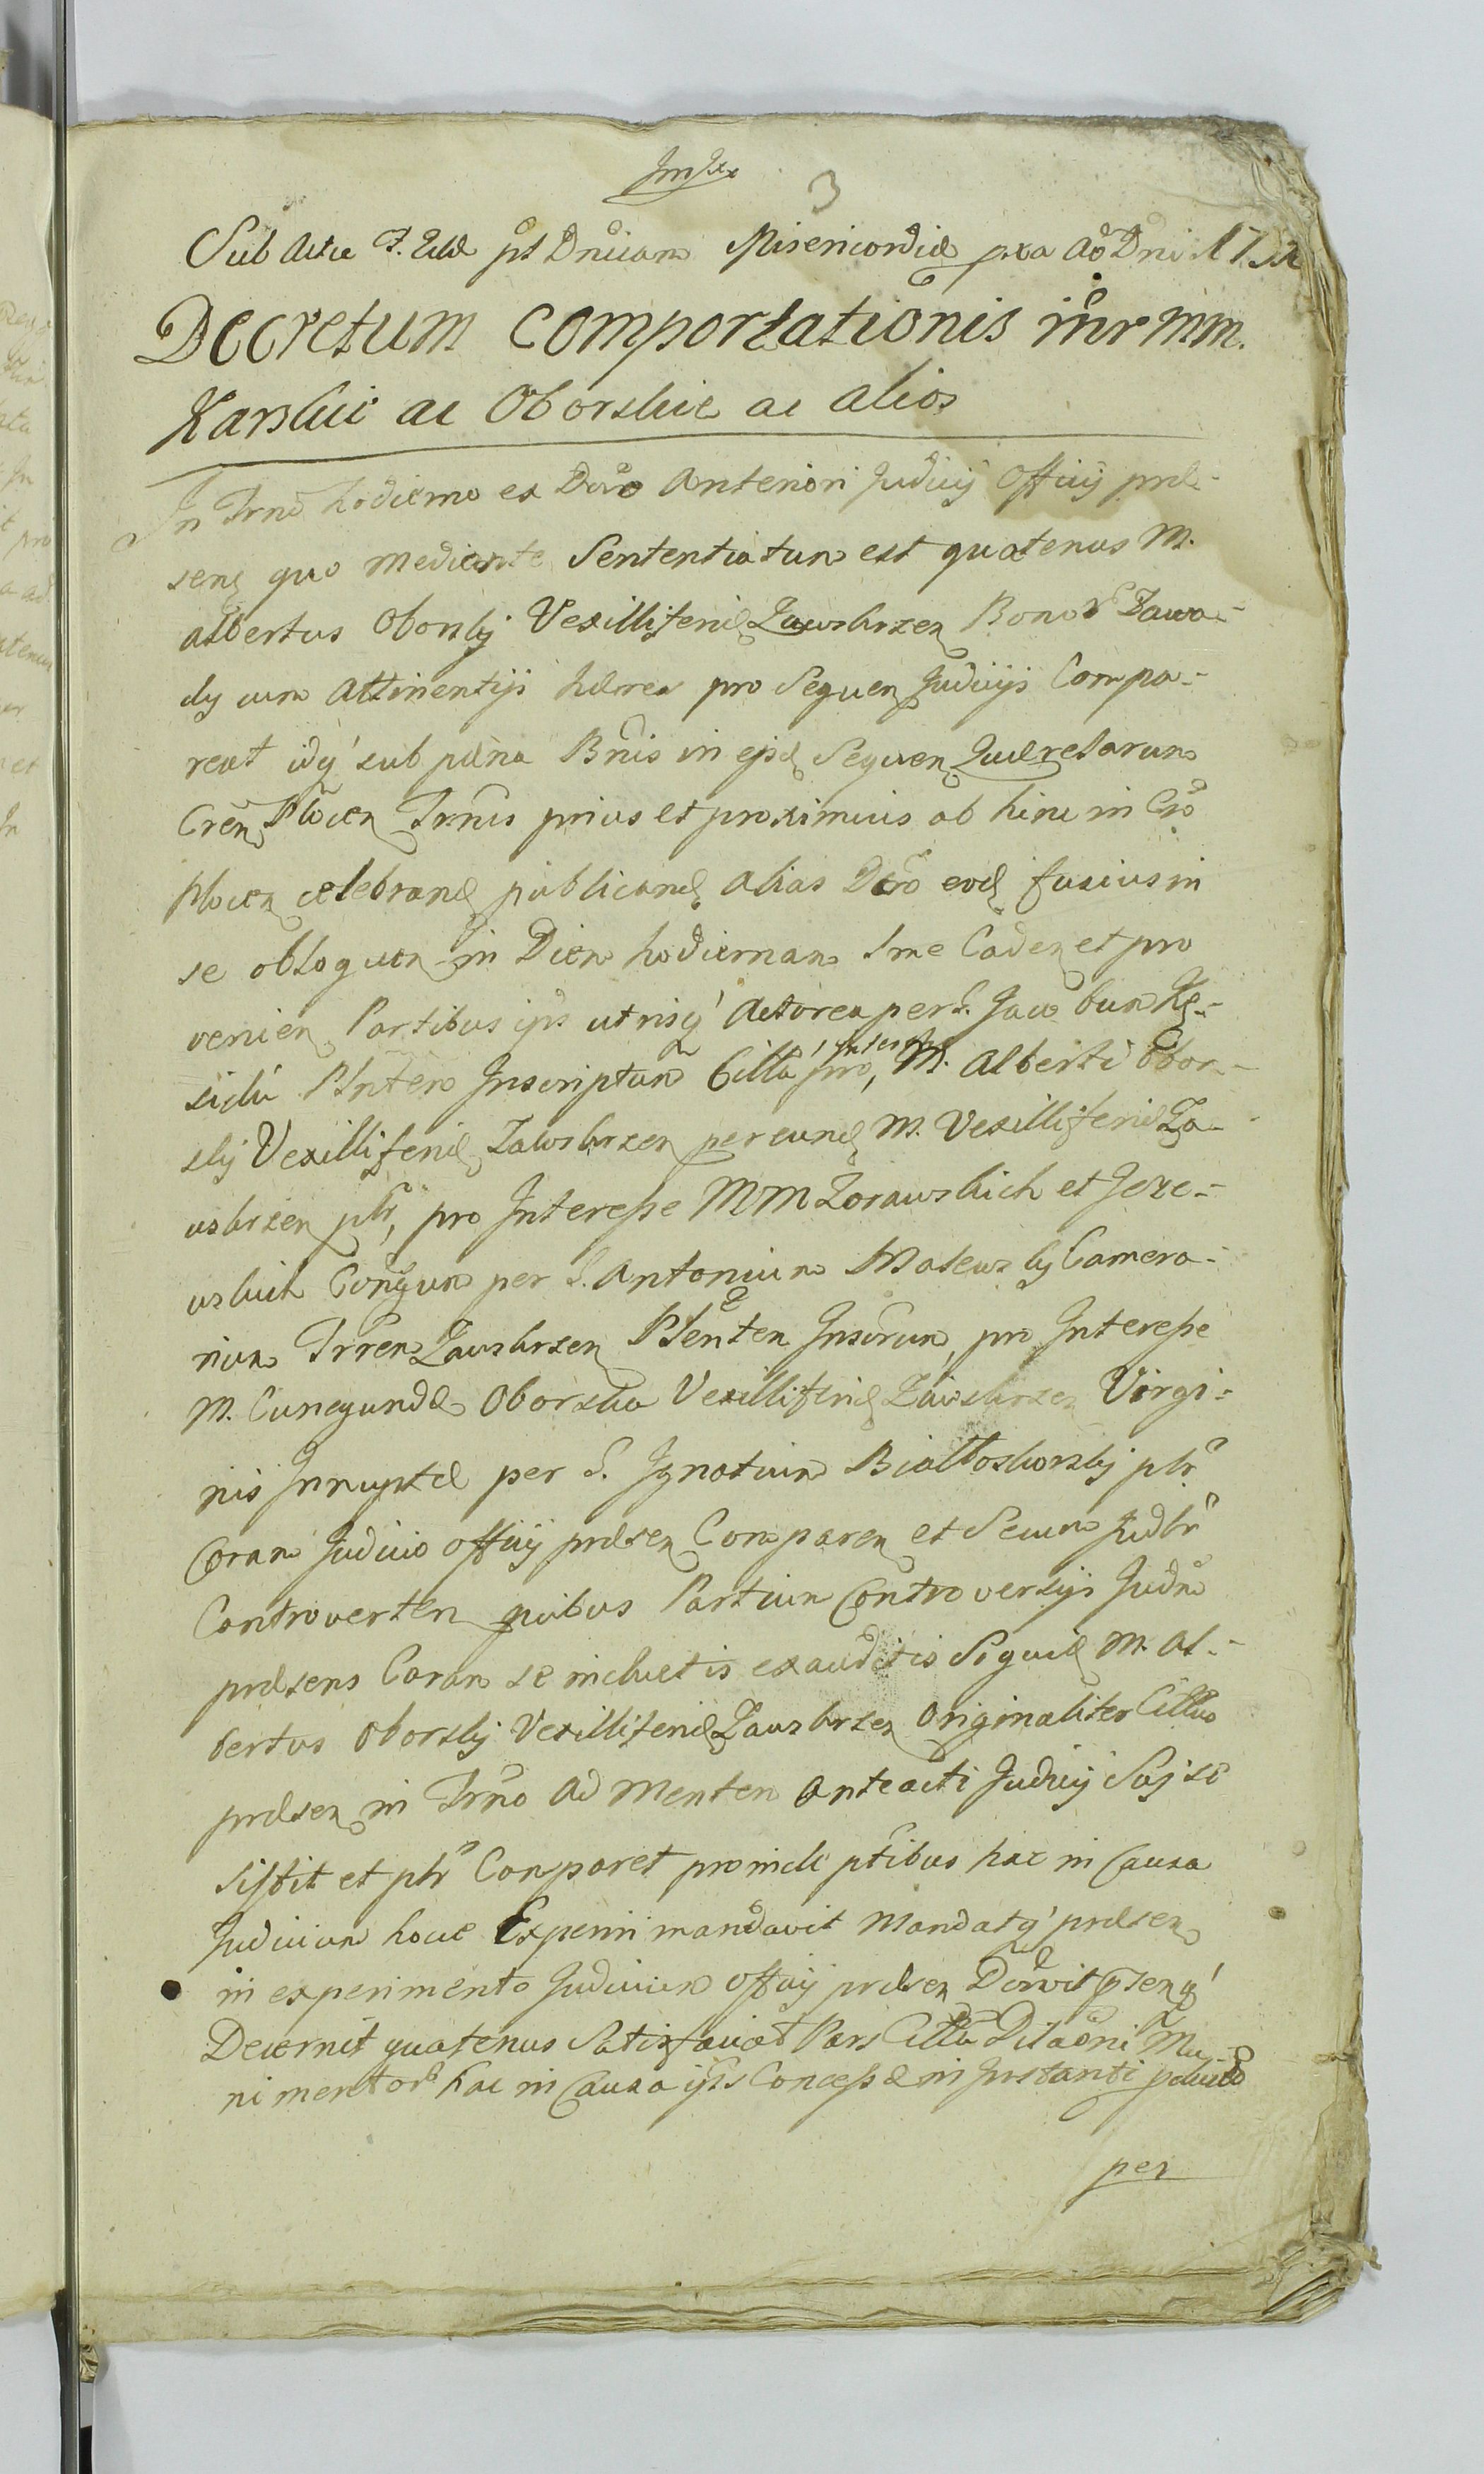 3
Sub Actu F. 2dæ pt Dnicam Misericordiæ pxa Ao Dni
Decretum Comportationis intr MM.
Karskie ac Oborskie ac alios
In Trno hodierno ex Dcro Anteriori Judicij Officij præ-
sen quo mediante Sententiatum est quatenus M.
Albertus Oborskj Vexilliferid Zawskrzen Bonor Zawa-
dy cum Attinentijs hæres pro Sequen Judicijs Compa-
reat idq sub pæna Bnis in ejsd Sequen Quærelarum
Cren Plocen Trnis prius et proximius ab hinc in Cro
Plocen celebrand publicand alias Dcro eod fusius in
se obloquen in Diem hodiernam Ime Caden et pro
venien Partibus ijs utrisq Actorea per S. Jacobum Kę-
sicki Plnten Inscriptum Citta pro, M. Alberti Obor-
skij Vexilliferid Zawskrzen per eund M. Vexilliferid Za-
wskrzen plr, pro Interesse MM Zorawskich et Jeze-
wskich Conjgum per S. Antonium Malewskj Camera-
rium Trren Zawskrzen Plenten Inscrum, pro Interesse
M. Cunegundæ Oborska Vexilliferid Zawskrzen Virgi-
nis Innuptæ per S. Ignatium Białłoskorskj plr
Coram Judicio officij præsen Comparen et Secum Judlr
Controverten quibus Partium Controversijs Judm
præsens Coram se inductis exauditis Siquid M. Al-
bertus Oborskj Vexilliferid Zawskrzen Originaliter Cittus
præsen in Trno Ad Mentem anteacti Judicij Sij se
sistit et plr Comparet proinde ptibus hac in Causa
Judicium hocce Experiri mandavit Mandatq præsen
in experimento Judicium officij præsen Dcrvit psenq
Decernit quatenus Satisfaciat Pars Citta Dilaoni Mu-
nimentor hac in Causa ijs Concessæ in Instanti
per